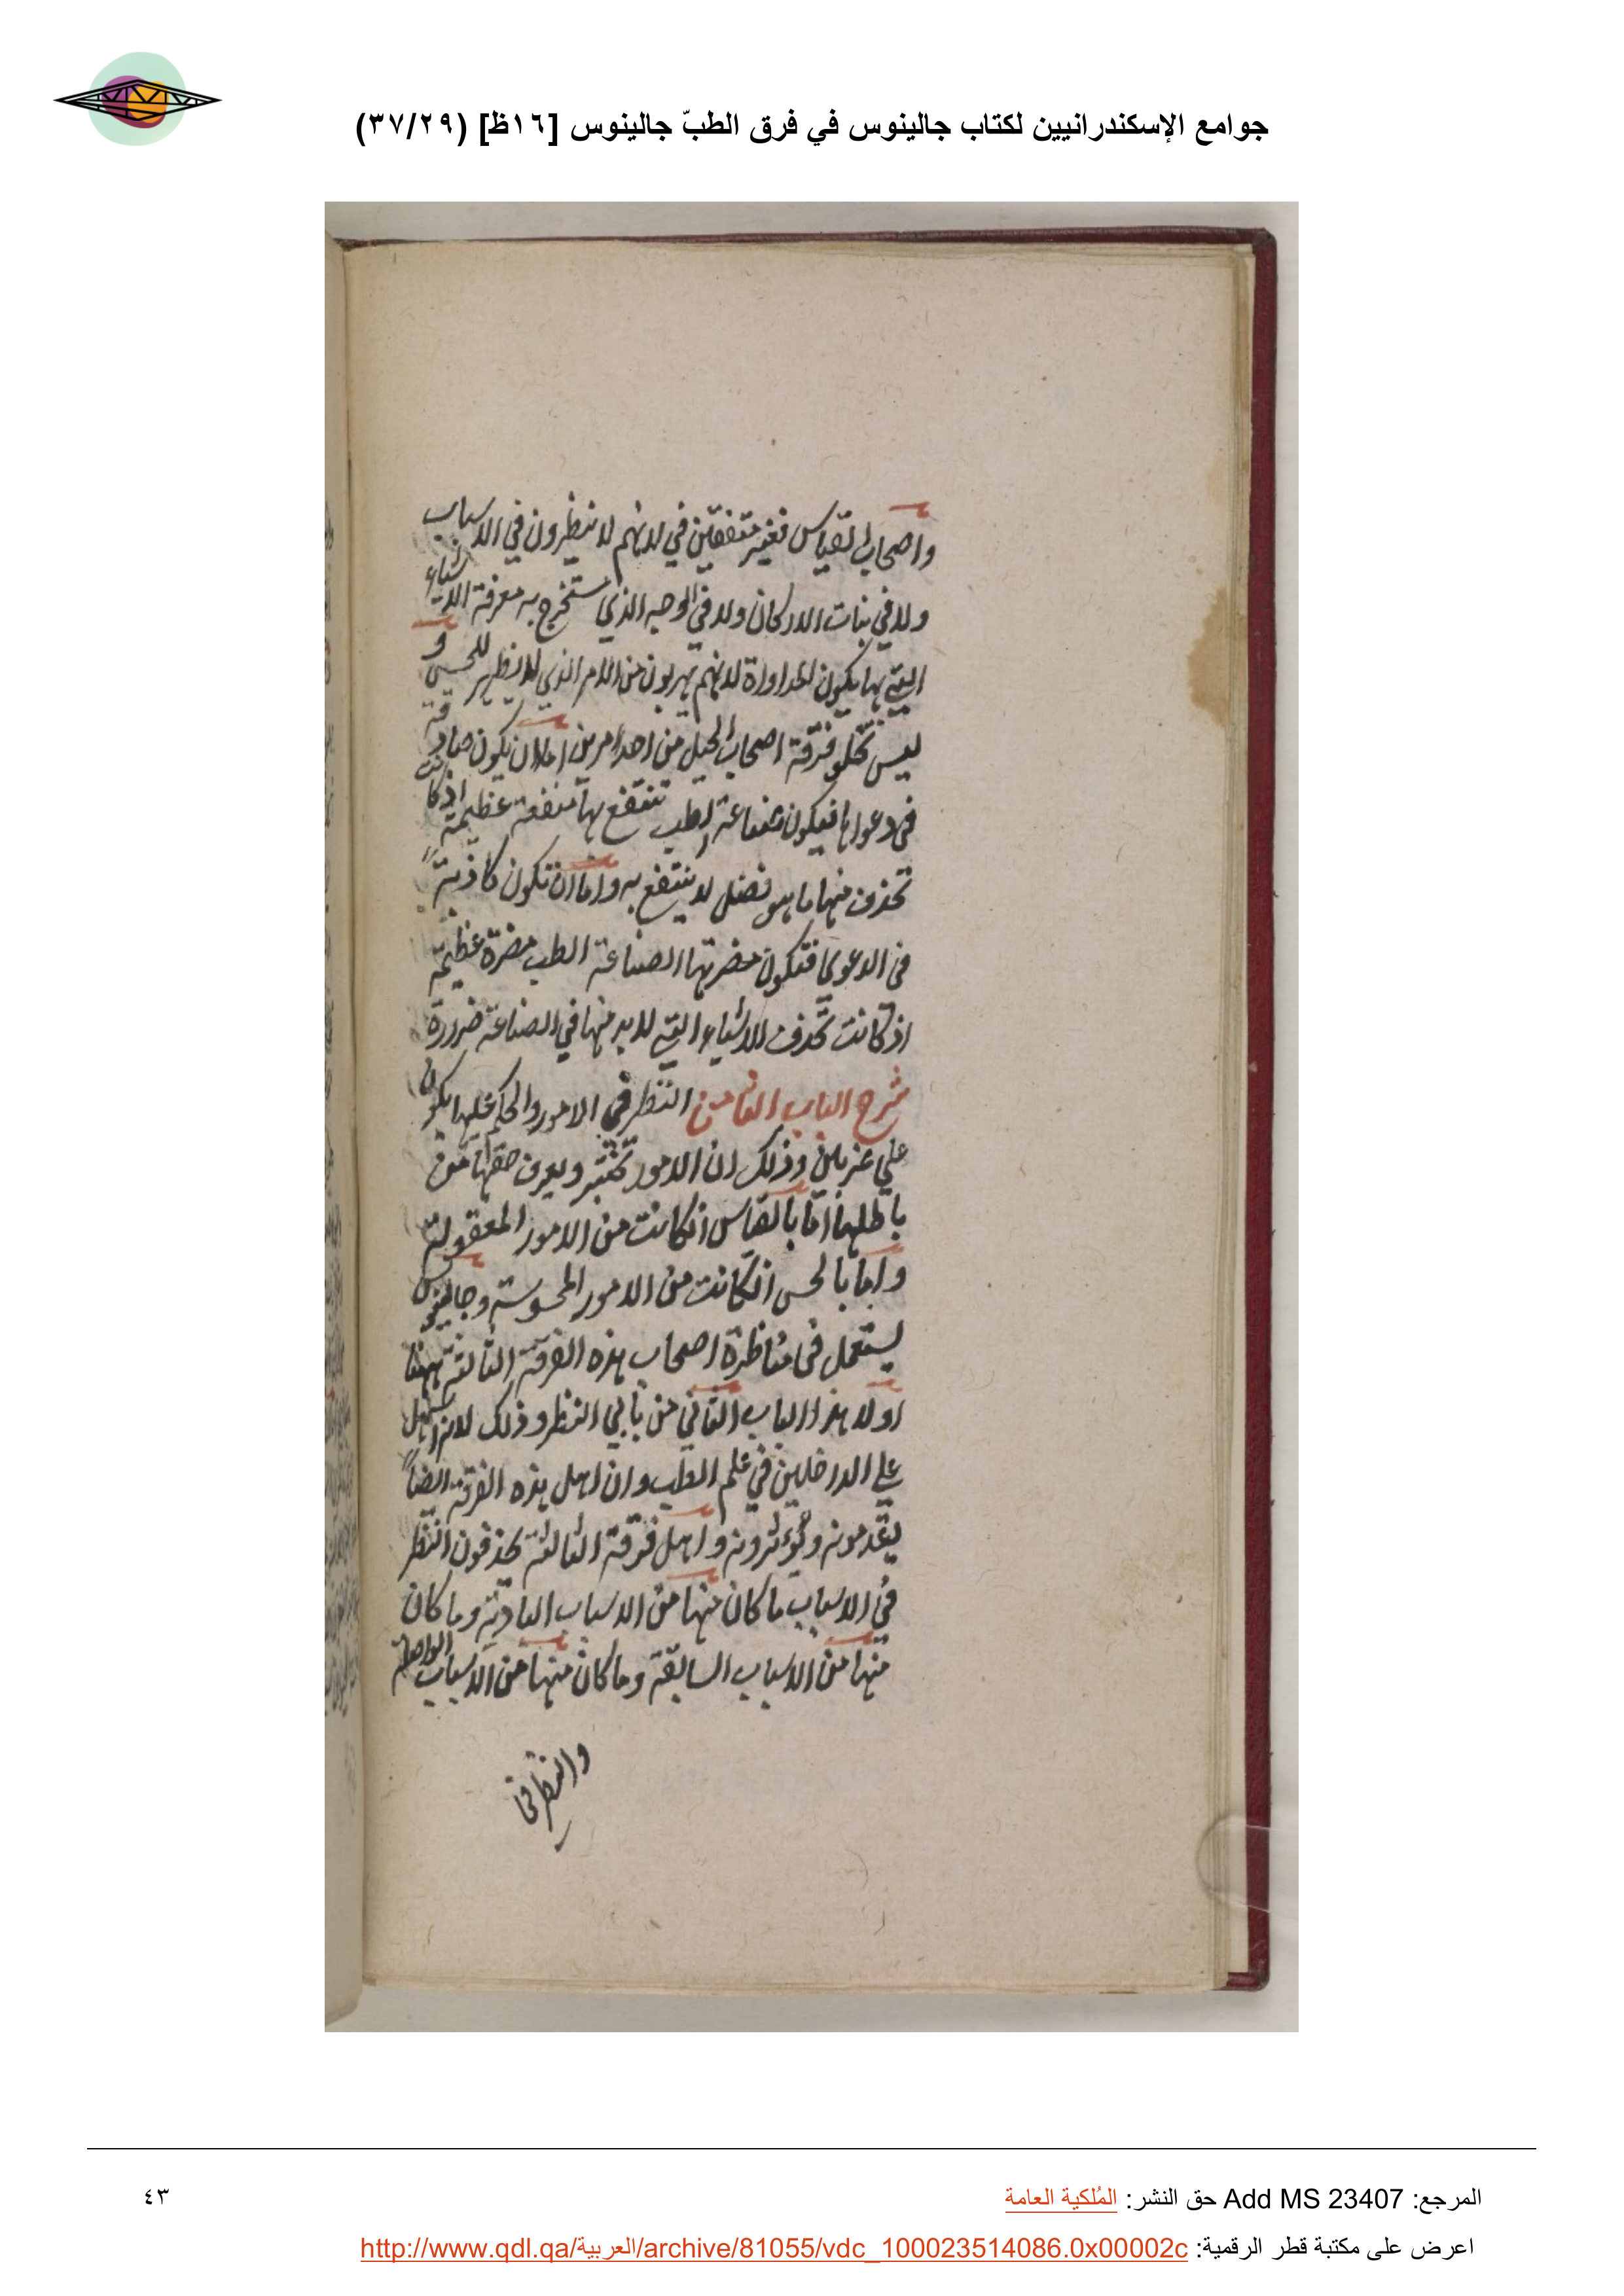 جوامع الإسكندرانيين لكتاب جالينوس في فرق الطبّ جالينوس [١٦ظ] (٣٧/٢٩)
واصحاب القياس فغير متفقين في لانهم لا ينظرون في الاسباب
ولا في نبات الاركان ولا في الوجه الذي تستخرج به معرفة الاشياء
التي بها يكون المداواة لانهم يهربون من الامر الذي لا يظهر للحس و
ليس تخلو فرقة اصحاب الحيل من احد امرين اما ان يكون صادقة
في دعواها فيكون صناعة الطب تنتفع بها منفعة عظيمة اذ كانت
تحذف منها ما هو فضل لا ينتفع به واما ان تكون كاذبة
في الدعوى فتكون مضرتها الصناعة الطب مضرة عظيمة
اذ كانت تحذف الاشياء التي لابد منها في الصناعة ضرورة
شرح الباب الثامن النظر في الامور والحكم عليها يكون
على ضربين وذلك ان الامور تختبر ويعرف حقها من
باطلها اما بالقياس ان كانت من الامور المعقولة
واما بالحس ان كانت من الامور المحسوسة وجالينوس
يستعمل في مناظرة اصحاب هذه الفرقة الثالثة ههنا
اولا هذا الباب الثاني من بابي النظر وذلك لانه اسهل
على الداخلين في علم الطب وان اهل هذه الفرقة ايضاً
يقدمونه ويؤثرونه واهل فرقة الثالثة يحذفون النظر
في الاسباب ما كان منها من الاسباب البادية وما كان
منها من الاسباب السابقة وما كان منها من الاسباب الواصلة
والنظر في
المرجع: Add MS 23407 حق النشر: المُلكية العامة
٤٣
اعرض على مكتبة قطر الرقمية: http://www.qdl.qa/العربية/archive/81055/vdc_100023514086.0x00002c